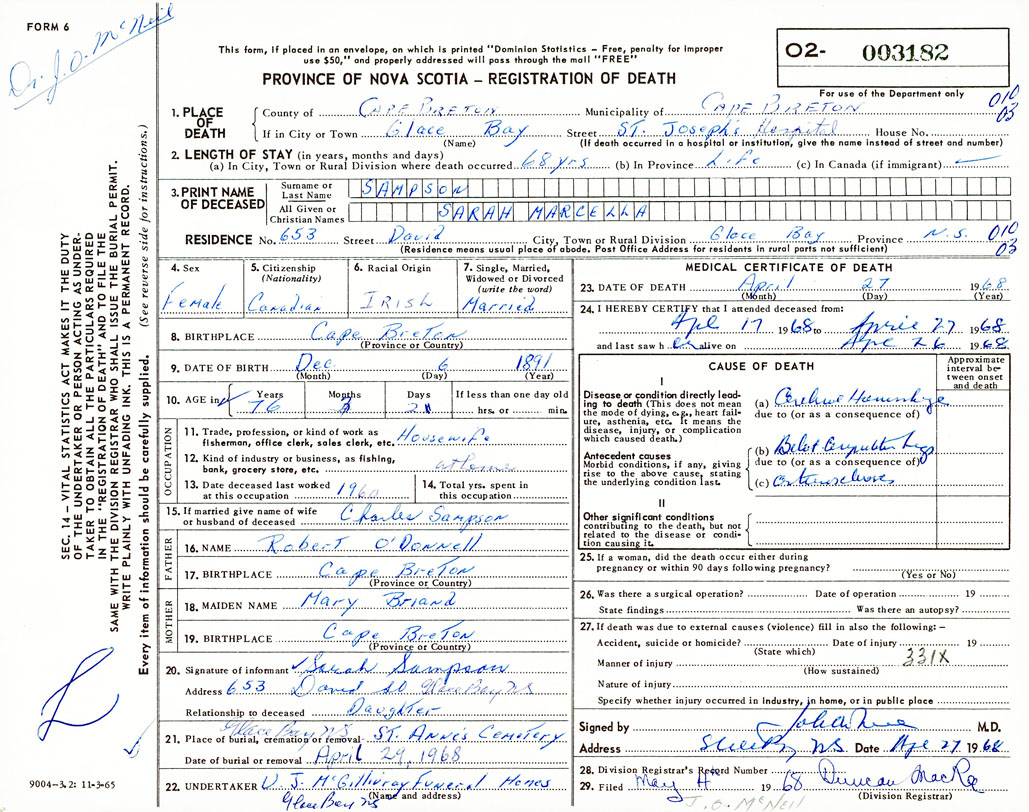 FORM 6
Dr. J. O. McNeil
This form, if placed in an envelope, on which is printed "Dominion Statistics – Free, penalty for improper
use $50," and properly addressed will pass through the mail "FREE"
PROVINCE OF NOVA SCOTIA – REGISTRATION OF DEATH
O2- 003182
For use of the Department only
010
03
1. PLACE OF DEATH
County of CAPE BRETON Municipality of CAPE BRETON
If in City or Town Glace Bay Street ST. Joseph's Hospital House No.
(Name) (If death occurred in a hospital or institution, give the name instead of street and number)
2. LENGTH OF STAY (in years, months and days)
(a) In City, Town or Rural Division where death occurred 68 yrs (b) In Province Life (c) In Canada (if immigrant)
3. PRINT NAME OF DECEASED
Surname or Last Name SAMPSON
All Given or Christian Names SARAH MARCELLA
RESIDENCE No. 653 Street David City, Town or Rural Division Glace Bay Province N.S. 010
03
(Residence means usual place of abode. Post Office Address for residents in rural parts not sufficient)
4. Sex
Female
5. Citizenship
(Nationality)
Canadian
6. Racial Origin
IRISH
7. Single, Married,
Widowed or Divorced
(write the word)
Married
8. BIRTHPLACE Cape Breton
(Province or Country)
9. DATE OF BIRTH Dec 6 1891
(Month) (Day) (Year)
10. AGE in
Years Months Days If less than one day old
76 21 hrs. or min.
OCCUPATION
11. Trade, profession, or kind of work as
fisherman, office clerk, sales clerk, etc. Housewife
12. Kind of industry or business, as fishing,
bank, grocery store, etc. at home
13. Date deceased last worked
at this occupation 1960
14. Total yrs. spent in
this occupation
15. If married give name of wife
or husband of deceased Charles Sampson
FATHER
16. NAME Robert O'Donnell
17. BIRTHPLACE Cape Breton
(Province or Country)
MOTHER
18. MAIDEN NAME Mary Briand
19. BIRTHPLACE Cape Breton
(Province or Country)
20. Signature of informant Sarah Sampson
Address 653 David St Glace Bay NS
Relationship to deceased Daughter
Glace Bay NS
21. Place of burial, cremation or removal ST. Ann's Cemetery
Date of burial or removal April 29, 1968
22. UNDERTAKER V. J. McGillivray Funeral Homes
(Name and address)
Glace Bay NS
MEDICAL CERTIFICATE OF DEATH
23. DATE OF DEATH April 27 1968
(Month) (Day) (Year)
24. I HEREBY CERTIFY that I attended deceased from:
Apl 17 1968 to April 27 1968
and last saw her alive on Apl 26 1968
CAUSE OF DEATH
Approximate
interval be-
tween onset
and death
I
Disease or condition directly lead-
ing to death (This does not mean
the mode of dying, e.g., heart fail-
ure, asthenia, etc. It means the
disease, injury, or complication
which caused death.)
(a) Cerebral Hemorrhage
due to (or as a consequence of)
Antecedent causes
Morbid conditions, if any, giving
rise to the above cause, stating
the underlying condition last.
(b)
due to (or as a consequence of)
(c)
II
Other significant conditions
contributing to the death, but not
related to the disease or condi-
tion causing it.
25. If a woman, did the death occur either during
pregnancy or within 90 days following pregnancy?
(Yes or No)
26. Was there a surgical operation? Date of operation 19
State findings Was there an autopsy?
27. If death was due to external causes (violence) fill in also the following: –
Accident, suicide or homicide? Date of injury 19
(State which)
331X
Manner of injury
(How sustained)
Nature of injury
Specify whether injury occurred in Industry, in home, or in public place
Signed by M.D.
Address NS Date Apl 27 1968
28. Division Registrar's Record Number
29. Filed May 1968 Duncan MacRae
(Division Registrar)
J. O. McNEIL
SEC. 14 – VITAL STATISTICS ACT MAKES IT THE DUTY
OF THE UNDERTAKER OR PERSON ACTING AS UNDER-
TAKER TO OBTAIN ALL THE PARTICULARS REQUIRED
IN THE "REGISTRATION OF DEATH" AND TO FILE THE
SAME WITH THE DIVISION REGISTRAR WHO SHALL ISSUE THE BURIAL PERMIT.
WRITE PLAINLY WITH UNFADING INK. THIS IS A PERMANENT RECORD.
Every item of information should be carefully supplied. (See reverse side for instructions.)
9004–3.2: 11-3-65